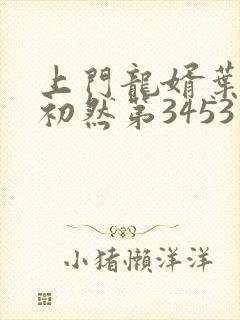 上門龍婿葉
初然第3453
小猪懶洋洋